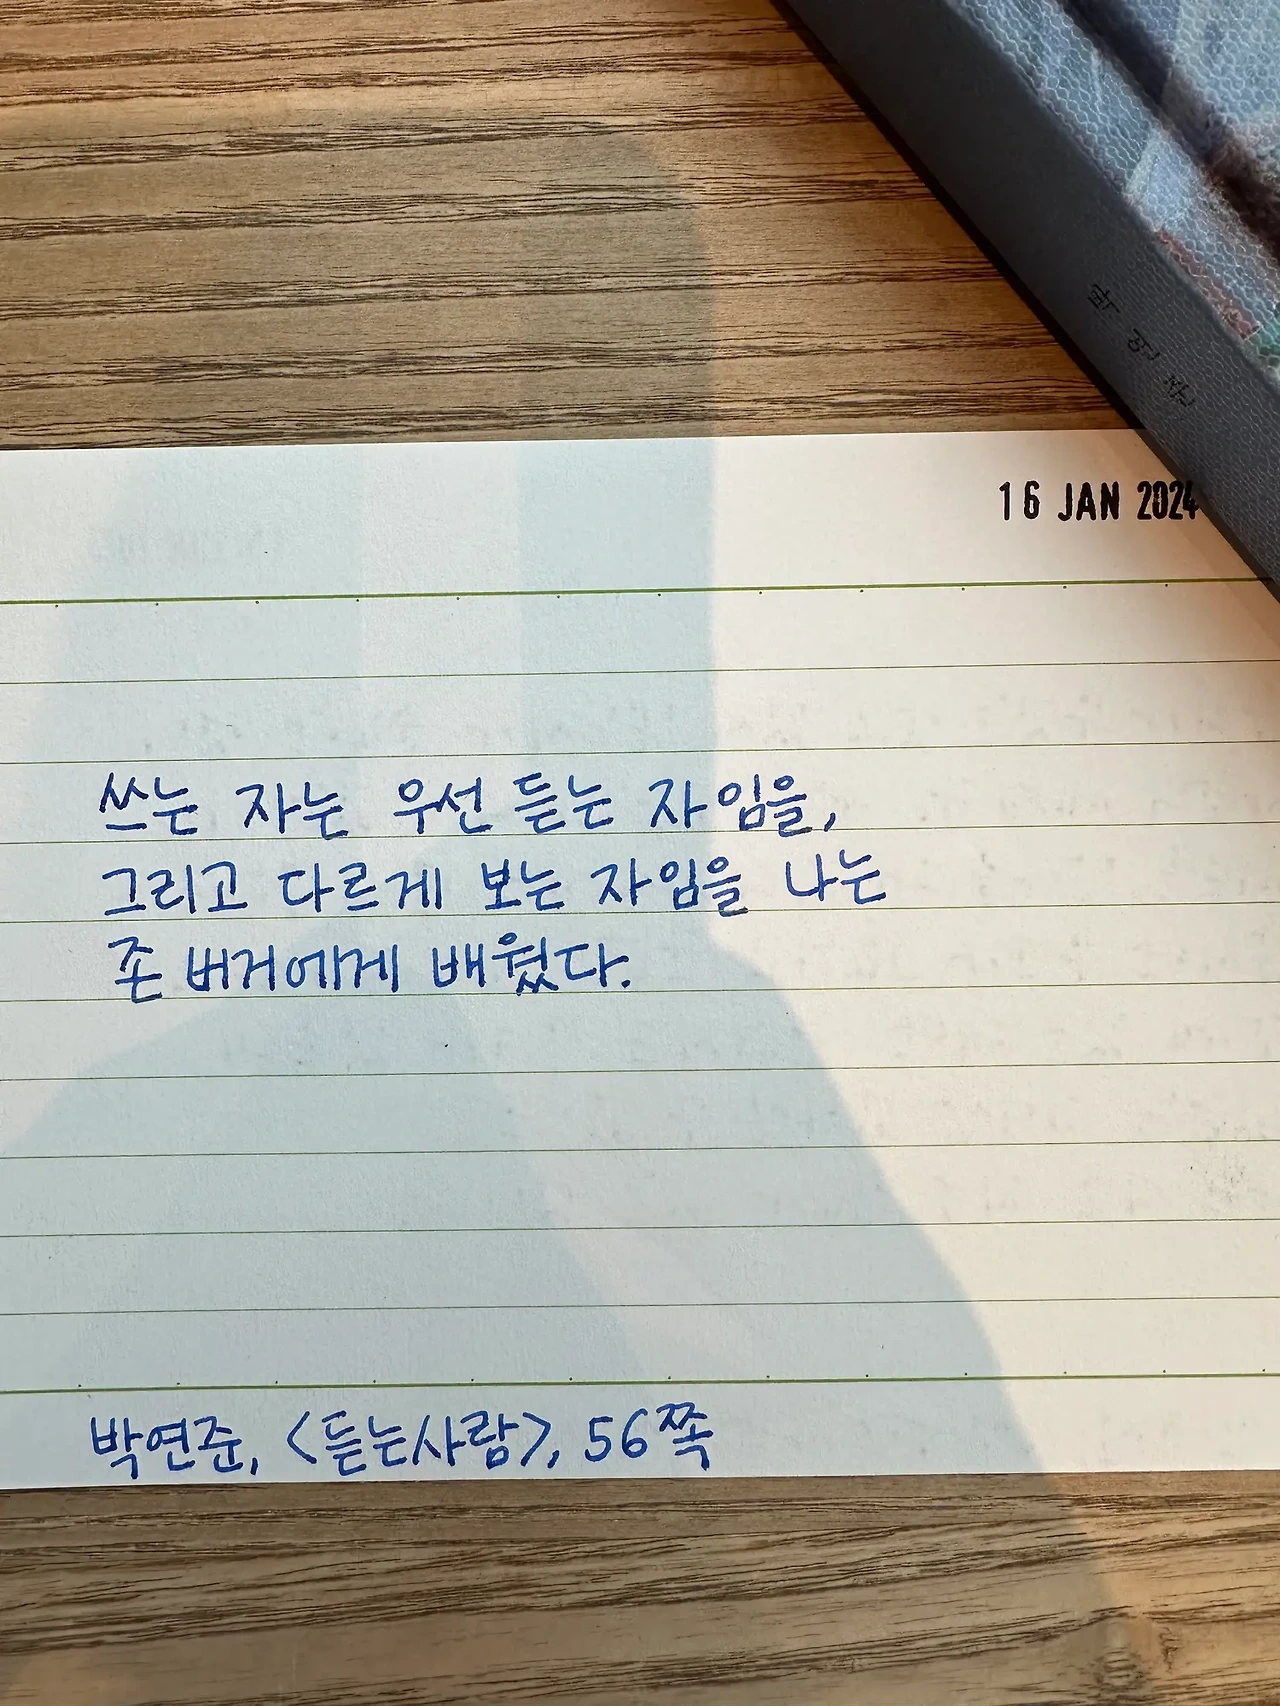 16 JAN 2024
쓰는 자는 우선 듣는 자임을,
그리고 다르게 보는 자임을 나는
존 버거에게 배웠다.
박연준, <듣는사람>, 56쪽